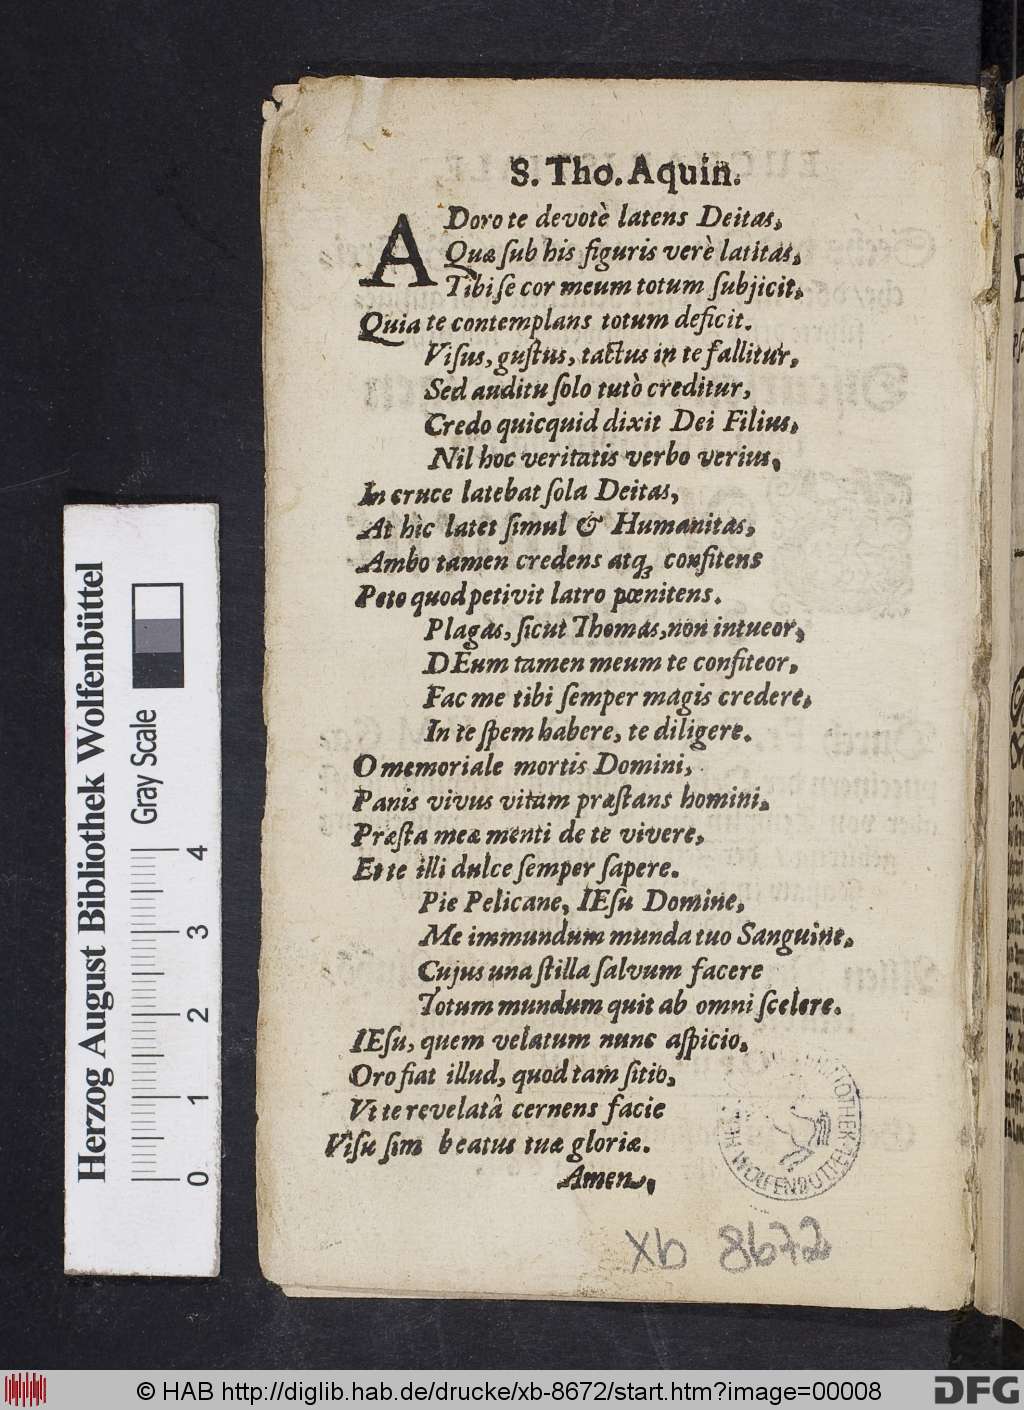 S. Tho. Aquin.
ADoro te devotè latens Deitas,
Quæ ſub his figuris verè latitas,
Tibi ſe cor meum totum ſubjicit,
Quia te contemplans totum deficit.
Viſus, guſtus, tactus in te fallitur,
Sed auditu ſolo tutò creditur,
Credo quicquid dixit Dei Filius,
Nil hoc veritatis verbo verius,
In cruce latebat ſola Deitas,
At hìc latet ſimul & Humanitas,
Ambo tamen credens atqꝫ confitens
Peto quod petivit latro pœnitens.
Plagas, ſicut Thomas, non intueor,
DEum tamen meum te confiteor,
Fac me tibi ſemper magis credere,
In te ſpem habere, te diligere.
O memoriale mortis Domini,
Panis vivus vitam præſtans homini,
Præſta meæ menti de te vivere,
Et te illi dulce ſemper ſapere.
Pie Pelicane, IEſu Domine,
Me immundum munda tuo Sanguine,
Cujus una ſtilla ſalvum facere
Totum mundum quit ab omni ſcelere.
IEſu, quem velatum nunc aſpicio,
Oro fiat illud, quod tam ſitio,
Vt te revelatâ cernens facie
Viſu ſim beatus tuæ gloriæ.
Amen.
WOLFENBÜTTEL
Xb 8672
Herzog August Bibliothek Wolfenbüttel
Gray Scale
0 1 2 3 4
© HAB http://diglib.hab.de/drucke/xb-8672/start.htm?image=00008
DFG